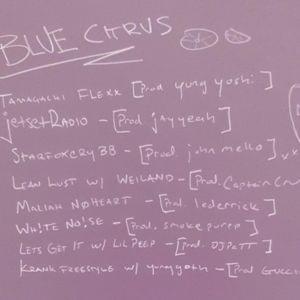 BLUE CITRUS
TAMAGACHI FLEXX [Prod yung yoshi]
jetset RADIO - [Prod jayyeah]
STARFOXCRY38 - [Prod. john mello] xx
LEAN LUST W/ WEILAND - [Prod. Captain
MALIAH NOHEART - [Prod. lederrick]
WH!TE NO!SE - [Prod. smokepurpp]
LETS GET IT W/ LIL PEEP - [Prod. DJ PATT]
KRANK FREESTYLE W/ yunggoth - [Prod GUCCI